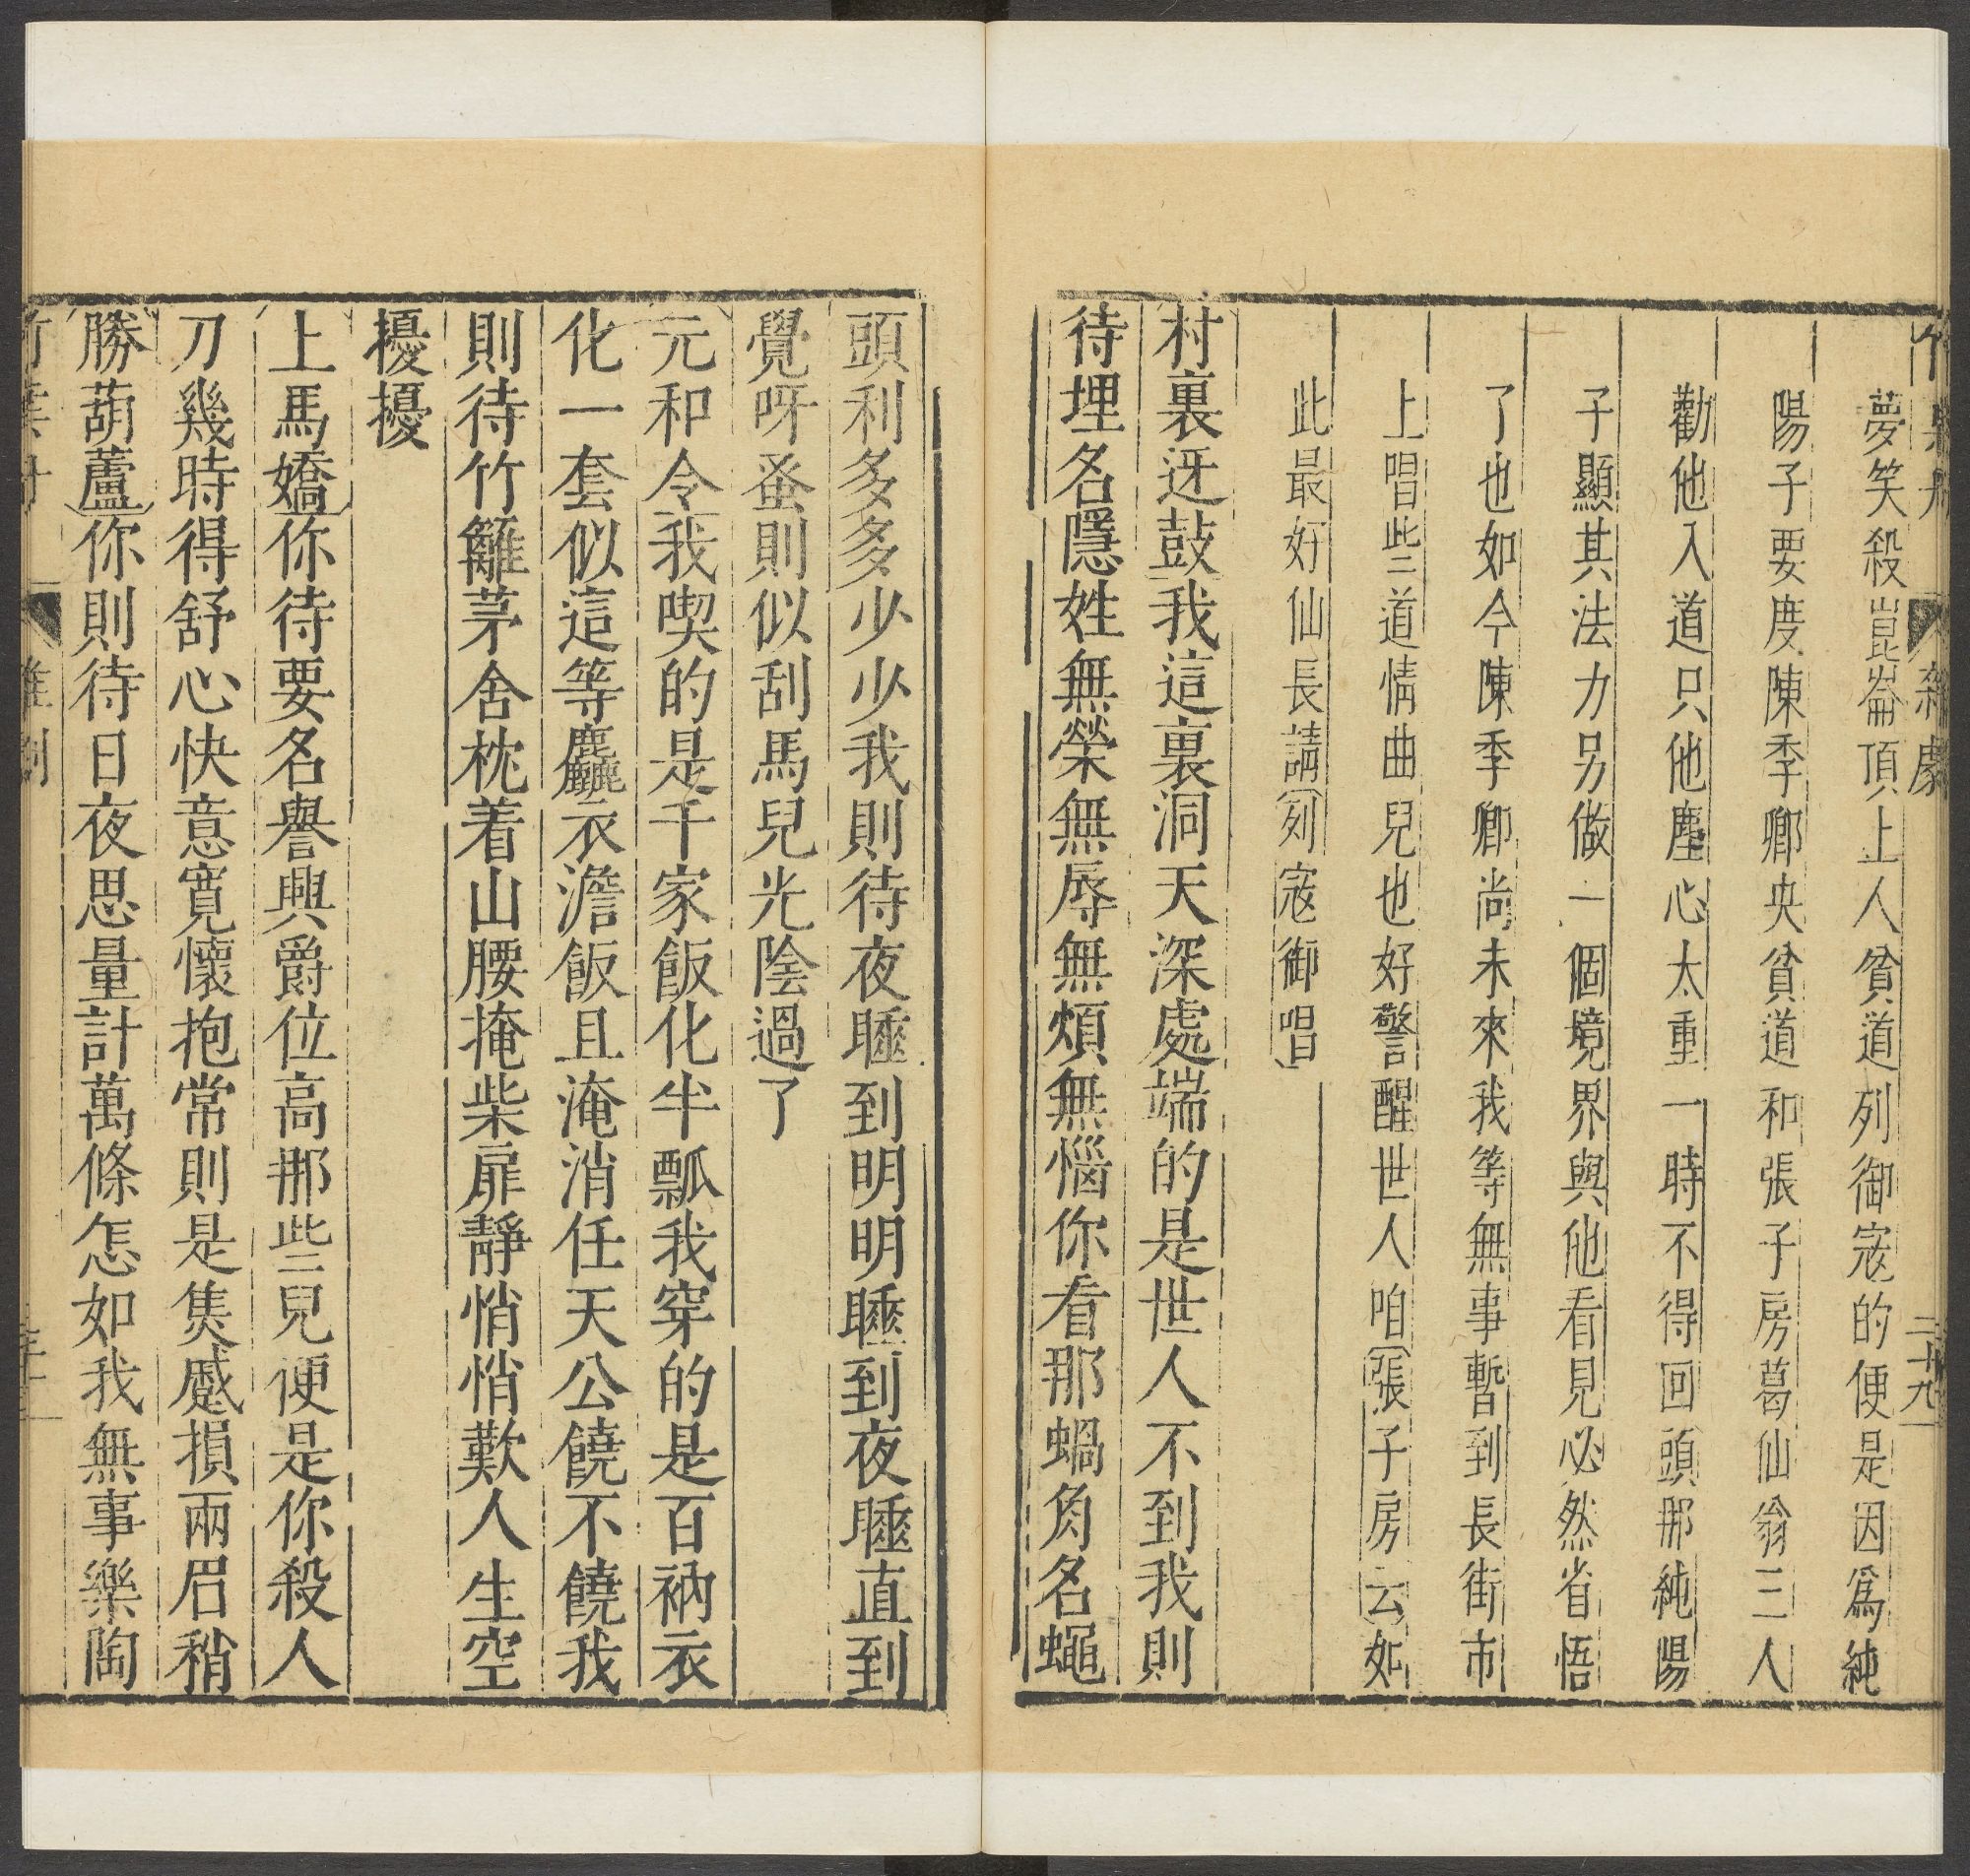 竹葉舟 雜劇 二十九
夢笑殺崑崙頂上人貧道列御寇的便是因爲純
陽子要度陳季卿央貧道和張子房葛仙翁三人
勸他入道只他塵心太重一時不得回頭那純陽
子顯其法力另做一個境界與他看見必然省悟
了也如今陳季卿尚未來我等無事暫到長街市
上唱些道情曲兒也好警醒世人咱〔張子房云〕如
此最好仙長請〔列寇御唱〕
村裏迓鼓我這裏洞天深處端的是世人不到我則
待埋名隱姓無榮無辱無煩無惱你看那蝸角名蠅
頭利多多少少我則待夜睡到明明睡到夜睡直到
覺呀蚤則似刮馬兒光陰過了
〔元和令〕我喫的是千家飯化半瓢我穿的是百衲衣
化一套似這等麤衣澹飯且淹消任天公饒不饒我
則待竹籬茅舍枕着山腰掩柴扉靜悄悄歎人生空
擾擾
〔上馬嬌〕你待要名譽興爵位高那些兒便是你殺人
刀幾時得舒心快意寬懷抱常則是焦蹙損兩眉稍
〔勝葫蘆〕你則待日夜思量計萬條怎如我無事樂陶
竹葉舟 雜劇